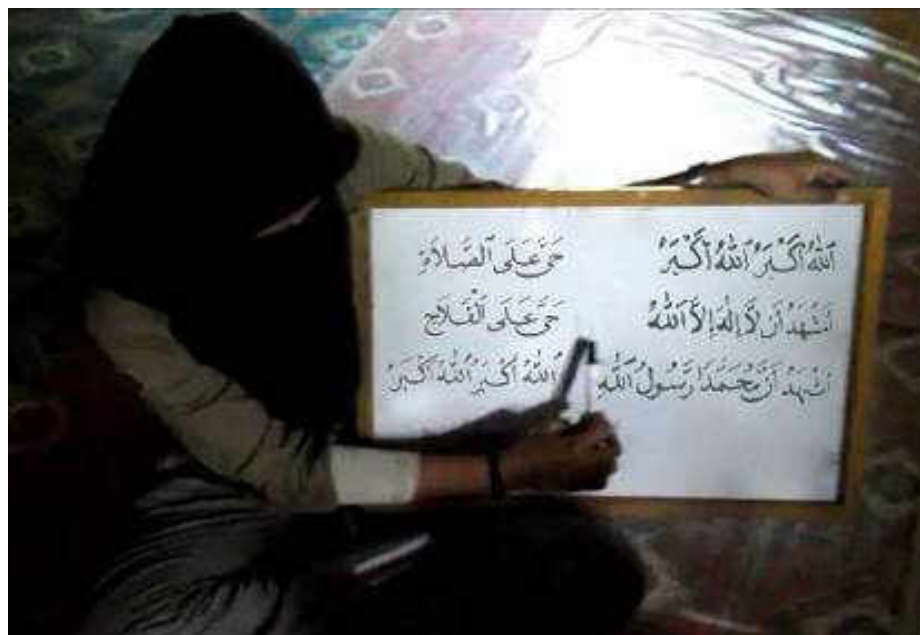 اَللّٰهُ اَكْبَرُ اَللّٰهُ اَكْبَرُ
اَشْهَدُ اَنْ لَّا اِلٰهَ اِلَّا اللّٰهُ
اَشْهَدُ اَنَّ مُحَمَّدًا رَّسُوْلُ اللّٰهِ
حَيَّ عَلَى الصَّلَاةِ
حَيَّ عَلَى الْفَلَاحِ
اَللّٰهُ اَكْبَرُ اَللّٰهُ اَكْبَرُ